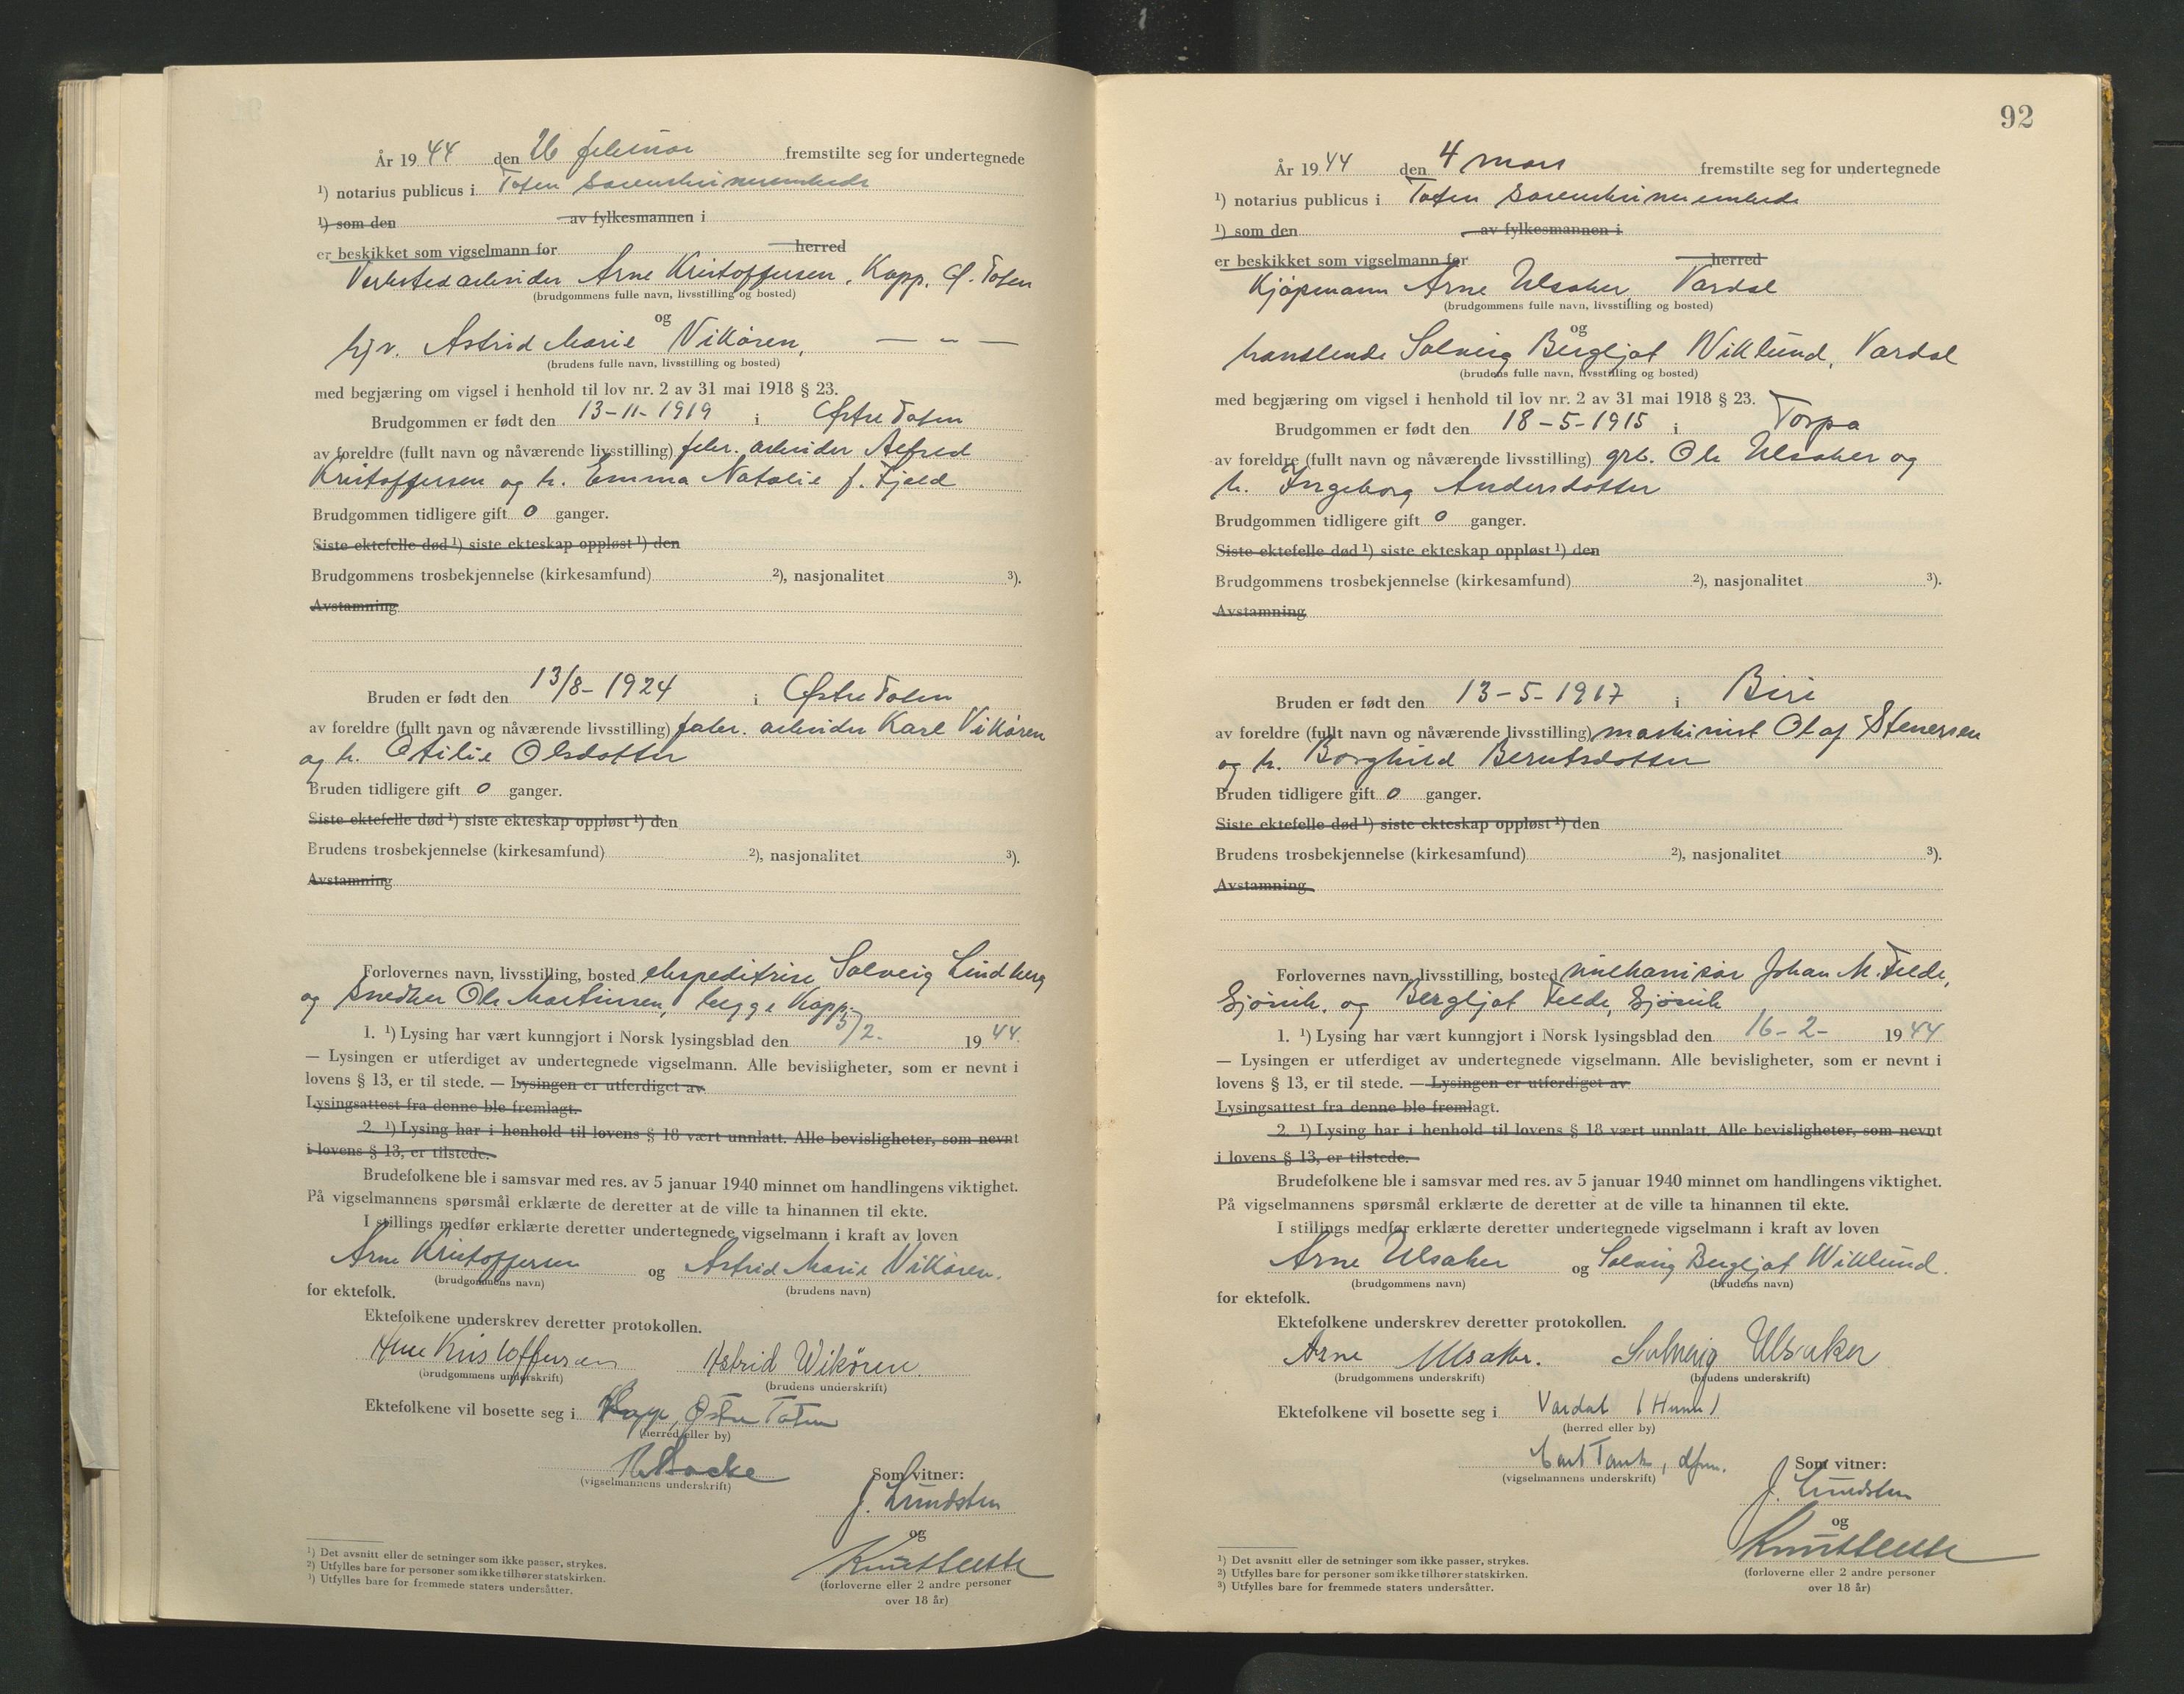 År 1944 den 26 februar fremstilte seg for undertegnede
¹) notarius publicus i Toten sorenskriverembede
¹) som den av fylkesmannen i
er beskikket som vigselmann for herred
Verkstedarbeider Arne Kristoffersen, Kapp, Ø. Toten
(brudgommens fulle navn, livsstilling og bosted)
og
hjv. Astrid Marie Vikören, — „ —
(brudens fulle navn, livsstilling og bosted)
med begjæring om vigsel i henhold til lov nr. 2 av 31 mai 1918 § 23.
Brudgommen er født den 13-11-1919 i Østre Toten
av foreldre (fullt navn og nåværende livsstilling) fabr. arbeider Alfred
Kristoffersen og h. Emma Natalie f. Fjeld
Brudgommen tidligere gift 0 ganger.
Siste ektefelle død ¹) siste ekteskap oppløst ¹) den
Brudgommens trosbekjennelse (kirkesamfund) ²), nasjonalitet ³).
Avstamning
Bruden er født den 13/8-1924 i Østre Toten
av foreldre (fullt navn og nåværende livsstilling) fabr. arbeider Karl Vikören
og h. Otilie Olsdotter
Bruden tidligere gift 0 ganger.
Siste ektefelle død ¹) siste ekteskap oppløst ¹) den
Brudens trosbekjennelse (kirkesamfund) ²), nasjonalitet ³).
Avstamning
Forlovernes navn, livsstilling, bosted ekspeditrise Solveig Lindberg
og snedker Ole Martinsen, begge Kapp.
1. ¹) Lysing har vært kunngjort i Norsk lysingsblad den 5/2- 1944.
— Lysingen er utferdiget av undertegnede vigselmann. Alle bevisligheter, som er nevnt i
lovens § 13, er til stede. — Lysingen er utferdiget av
Lysingsattest fra denne ble fremlagt.
2. ¹) Lysing har i henhold til lovens § 18 vært unnlatt. Alle bevisligheter, som nevnt
i lovens § 13, er tilstede.
Brudefolkene ble i samsvar med res. av 5 januar 1940 minnet om handlingens viktighet.
På vigselmannens spørsmål erklærte de deretter at de ville ta hinannen til ekte.
I stillings medfør erklærte deretter undertegnede vigselmann i kraft av loven
Arne Kristoffersen og Astrid Marie Vikören.
(brudgommens navn) (brudens navn)
for ektefolk.
Ektefolkene underskrev deretter protokollen.
Arne Kristoffersen Astrid Wikören.
(brudgommens underskrift) (brudens underskrift)
Ektefolkene vil bosette seg i Kapp, Østre Toten
(herred eller by)
(vigselmannens underskrift)
Som vitner:
J. Lundsten
og
(forloverne eller 2 andre personer
over 18 år)
¹) Det avsnitt eller de setninger som ikke passer, strykes.
²) Utfylles bare for personer som ikke tilhører statskirken.
³) Utfylles bare for fremmede staters undersåtter.
92
År 1944 den 4 mars fremstilte seg for undertegnede
¹) notarius publicus i Toten sorenskriverembede
¹) som den av fylkesmannen i
er beskikket som vigselmann for herred
Kjøpmann Arne Ulsaker, Vardal
(brudgommens fulle navn, livsstilling og bosted)
og
Solveig Bergljot Wiklund, Vardal
(brudens fulle navn, livsstilling og bosted)
med begjæring om vigsel i henhold til lov nr. 2 av 31 mai 1918 § 23.
Brudgommen er født den 18-5-1915 i Torpa
av foreldre (fullt navn og nåværende livsstilling) grb. Ole Ulsaker og
h. Ingeborg Andersdotter
Brudgommen tidligere gift 0 ganger.
Siste ektefelle død ¹) siste ekteskap oppløst ¹) den
Brudgommens trosbekjennelse (kirkesamfund) ²), nasjonalitet ³).
Avstamning
Bruden er født den 13-5-1917 i Biri
av foreldre (fullt navn og nåværende livsstilling) maskinist Olaf Stenersen
og h. Borghild Berntsdotter
Bruden tidligere gift 0 ganger.
Siste ektefelle død ¹) siste ekteskap oppløst ¹) den
Brudens trosbekjennelse (kirkesamfund) ²), nasjonalitet ³).
Avstamning
Forlovernes navn, livsstilling, bosted Johan M. Felde,
Gjøvik, og Bergljot Felde, Gjøvik
1. ¹) Lysing har vært kunngjort i Norsk lysingsblad den 16-2- 1944
— Lysingen er utferdiget av undertegnede vigselmann. Alle bevisligheter, som er nevnt i
lovens § 13, er til stede. — Lysingen er utferdiget av
Lysingsattest fra denne ble fremlagt.
2. ¹) Lysing har i henhold til lovens § 18 vært unnlatt. Alle bevisligheter, som nevnt
i lovens § 13, er tilstede.
Brudefolkene ble i samsvar med res. av 5 januar 1940 minnet om handlingens viktighet.
På vigselmannens spørsmål erklærte de deretter at de ville ta hinannen til ekte.
I stillings medfør erklærte deretter undertegnede vigselmann i kraft av loven
Arne Ulsaker og Solveig Bergljot Wiklund.
(brudgommens navn) (brudens navn)
for ektefolk.
Ektefolkene underskrev deretter protokollen.
Arne Ulsaker. Solveig Ulsaker
(brudgommens underskrift) (brudens underskrift)
Ektefolkene vil bosette seg i Vardal (Hunn)
(herred eller by)
dfm.
(vigselmannens underskrift)
Som vitner:
J. Lundsten
og
(forloverne eller 2 andre personer
over 18 år)
¹) Det avsnitt eller de setninger som ikke passer, strykes.
²) Utfylles bare for personer som ikke tilhører statskirken.
³) Utfylles bare for fremmede staters undersåtter.